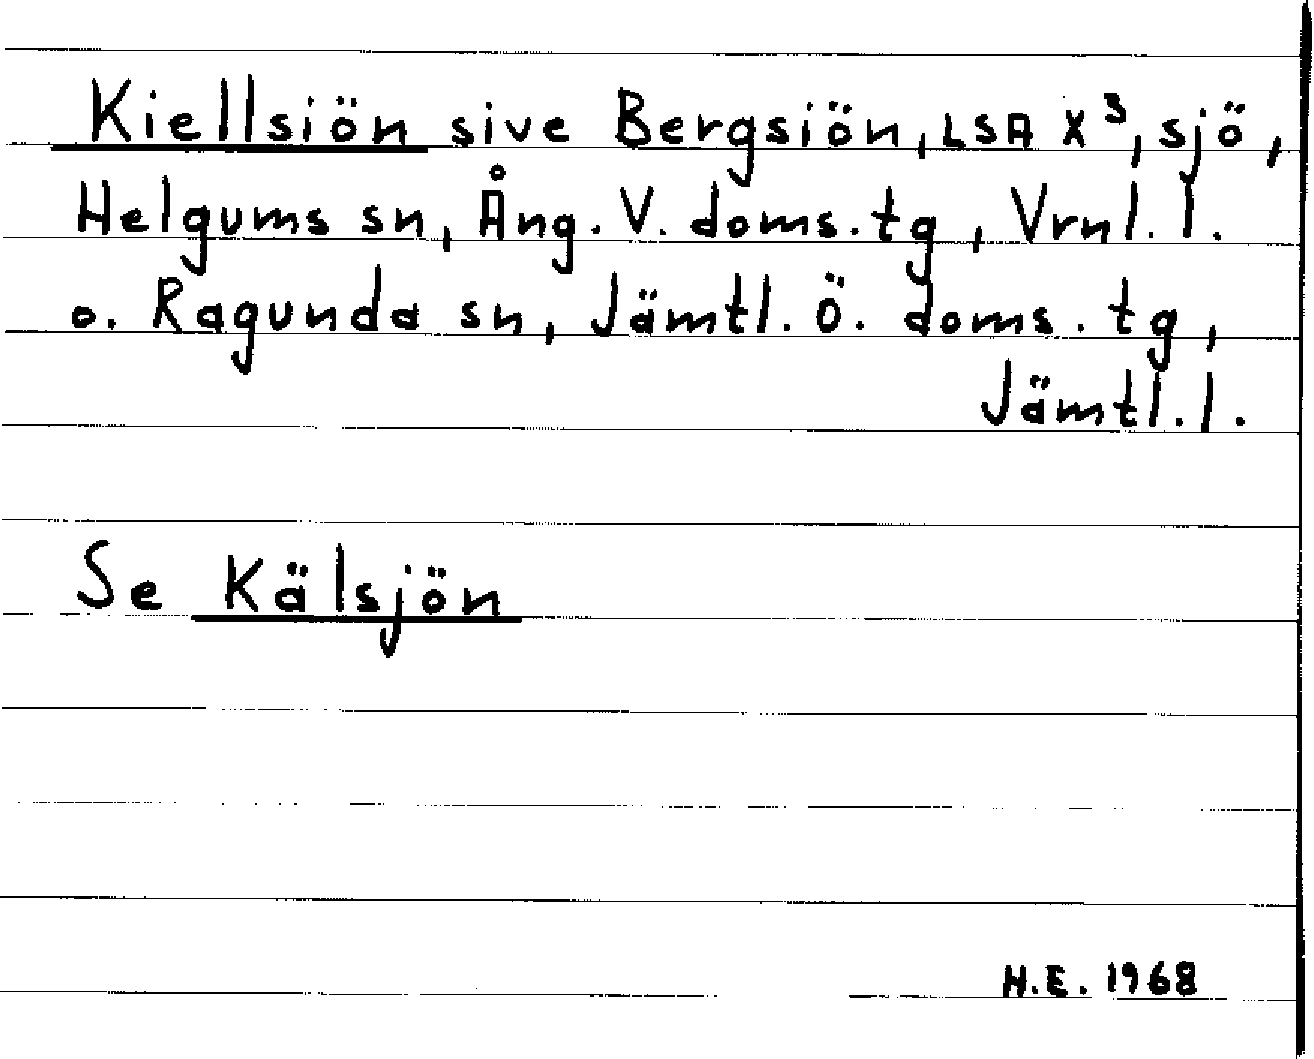 Kiellsiön sive Bergsiön, LSA X³, sjö,
Helgums sn, Ång. V. doms. tg, Vrnl. l.
o. Ragunda sn, Jämtl. Ö. doms. tg,
Jämtl. l.
Se Kälsjön
H.E. 1968